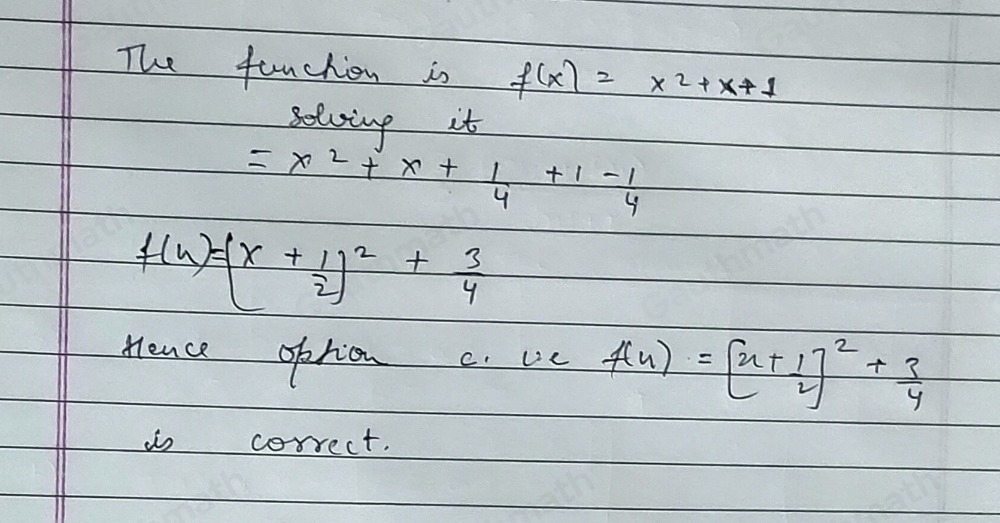 The function is f(x) = x2+x+1
solving it
= x² + x + 1/4 +1 - 1/4
f(x)=[x + 1/2]² + 3/4
Hence option c. i.e f(x) = [x+1/2]² + 3/4
is correct.